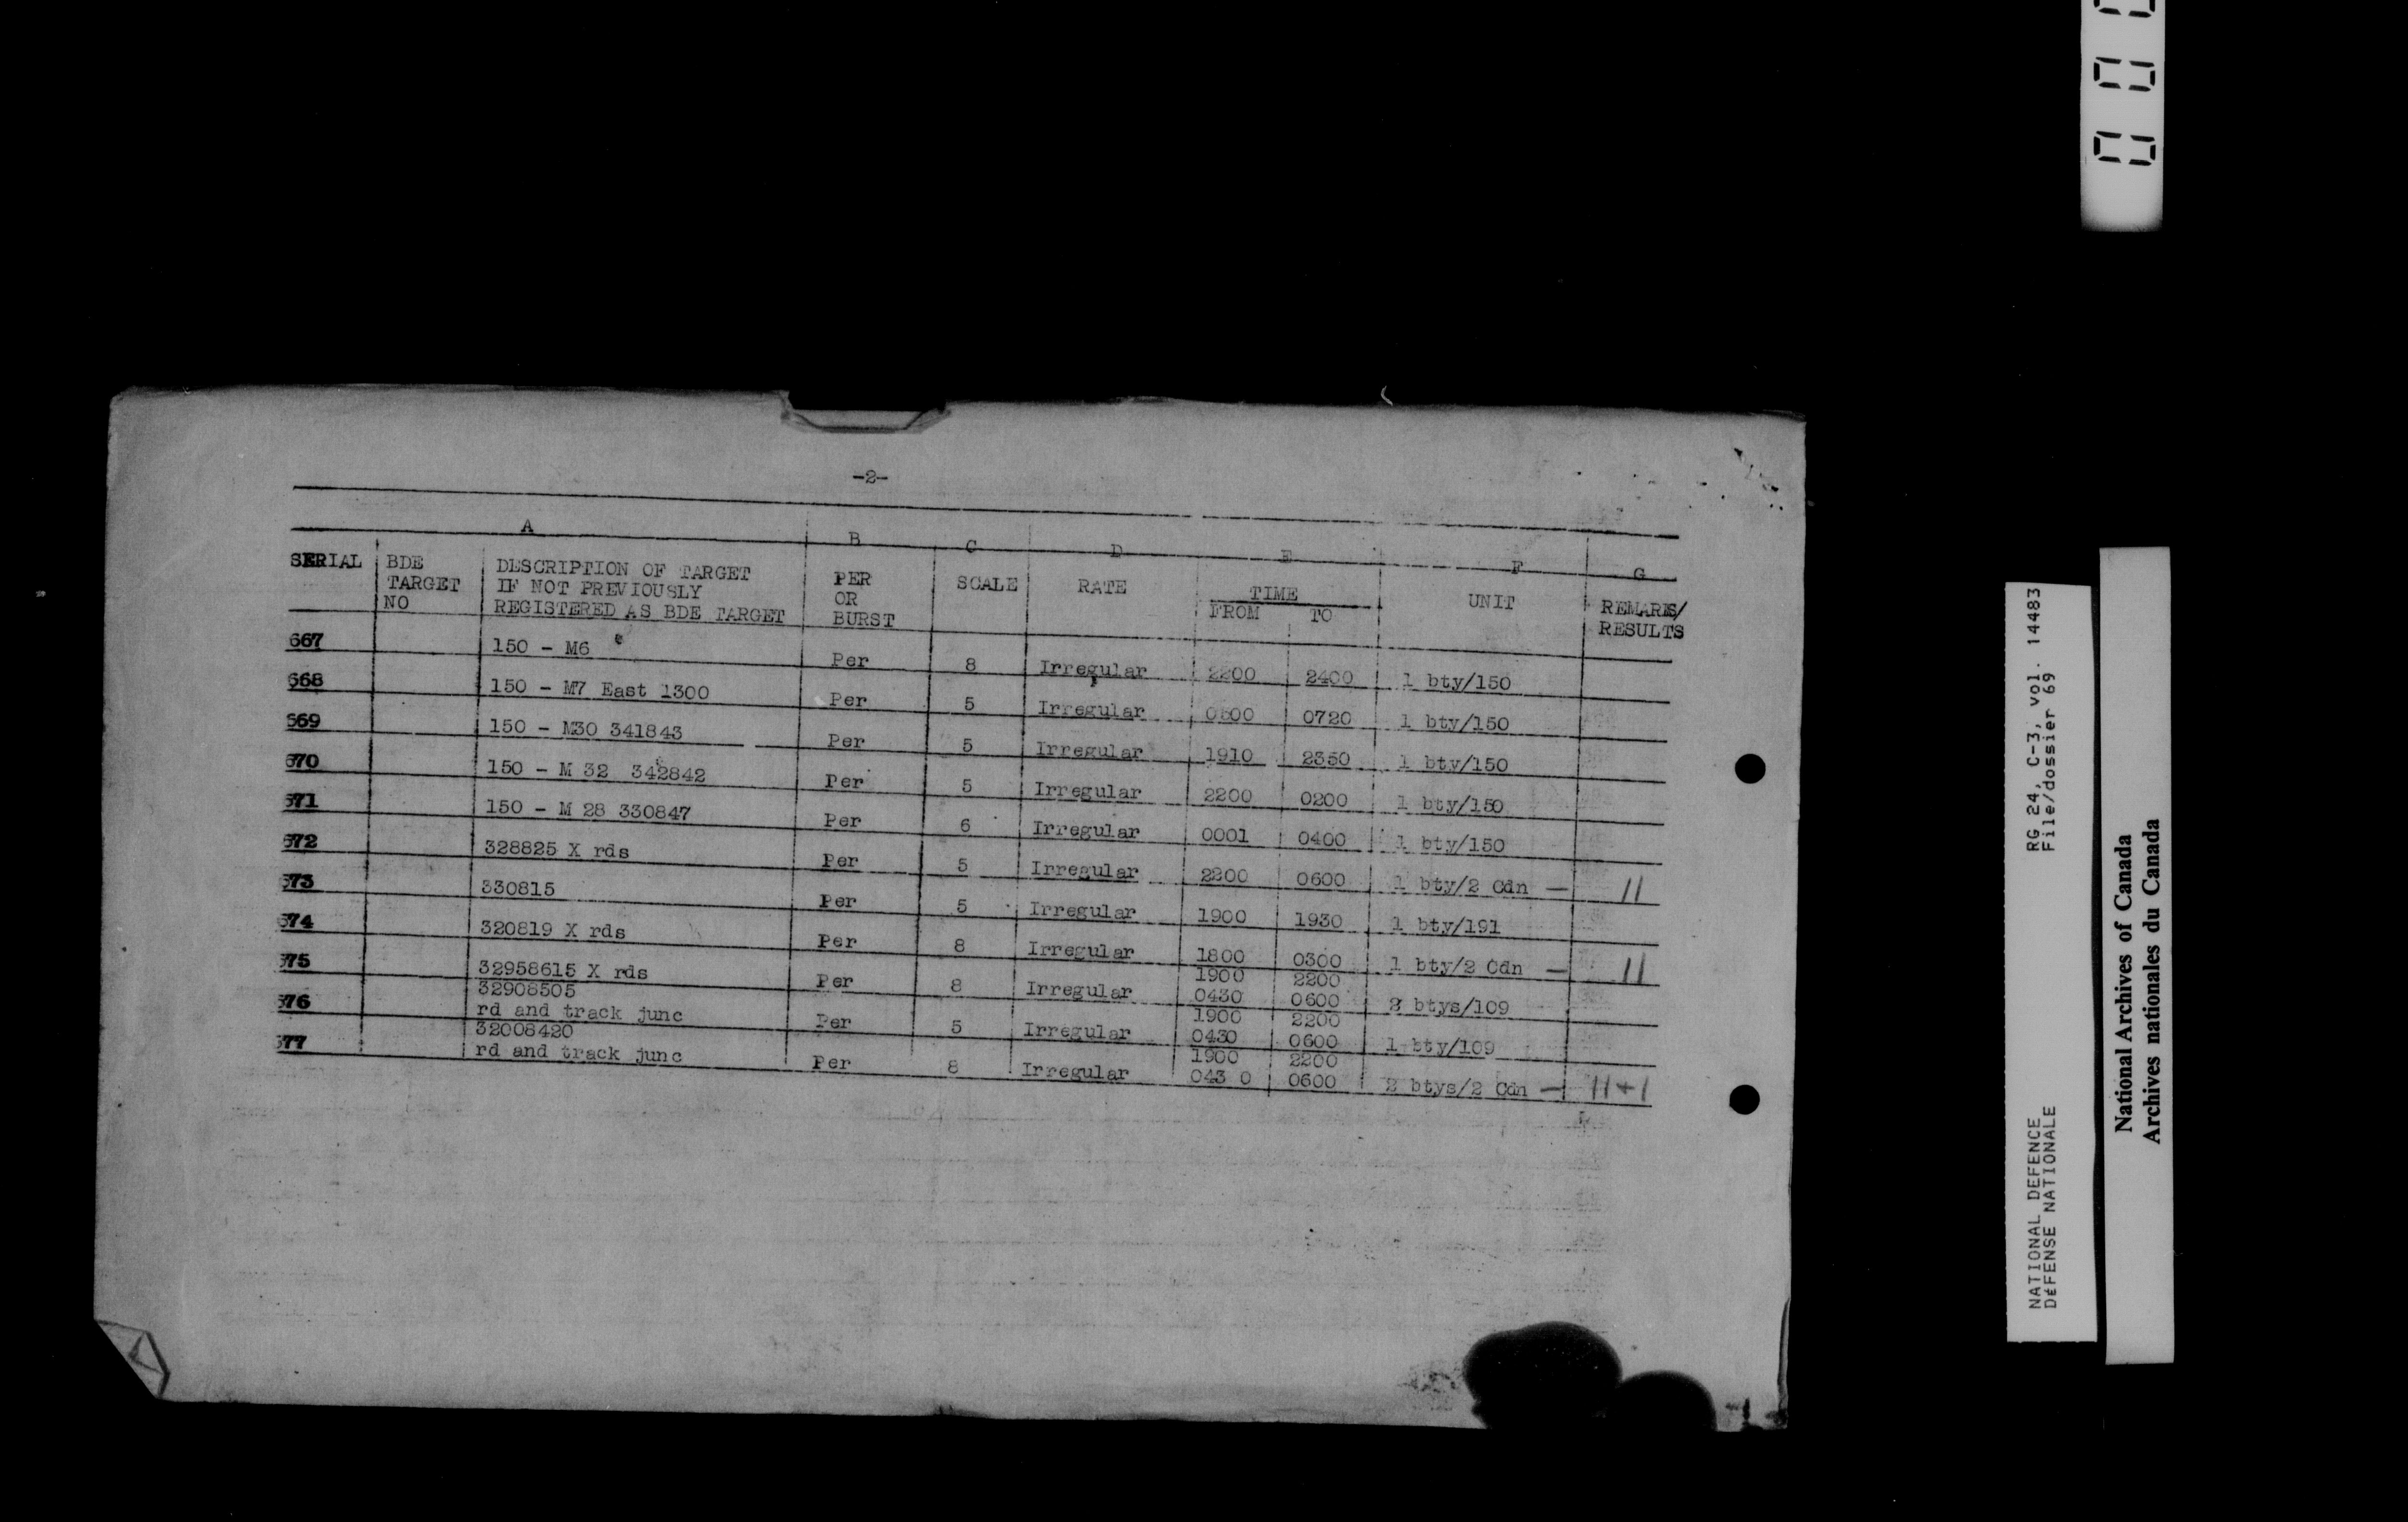 -2-
A B C D E F G
SERIAL BDE TARGET NO DESCRIPTION OF TARGET IF NOT PREVIOUSLY REGISTERED AS BDE TARGET PER OR BURST SCALE RATE TIME FROM TO UNIT REMARKS/ RESULTS
667 150 - M6 Per 8 Irregular 2200 2400 1 bty/150
668 150 - M7 East 1300 Per 5 Irregular 0720 1 bty/150
669 150 - M30 341843 Per 5 Irregular 1910 2350 1 bty/150
670 150 - M 32 342842 Per 5 Irregular 2200 0200 1 bty/150
671 150 - M 28 330847 Per 6 Irregular 0001 0400 1 bty/150
672 328825 X rds Per 5 Irregular 2200 0600 1 bty/2 Cdn — 11
673 330815 Per 5 Irregular 1900 1930 1 bty/191
674 320819 X rds Per 8 Irregular 1800 0300 1 bty/2 Cdn — 11
1900 2200
675 32958615 X rds Per 8 Irregular 0430 0600 2 btys/109
32908505 1900 2200
676 rd and track junc Per 5 Irregular 0430 0600 1 bty/109
32008420 1900 2200
677 rd and track junc Per 8 Irregular 043 0 0600 2 btys/2 Cdn — 11+1
RG 24, C-3, vol. 14483
File/dossier 69
NATIONAL DEFENCE
DÉFENSE NATIONALE
National Archives of Canada
Archives nationales du Canada